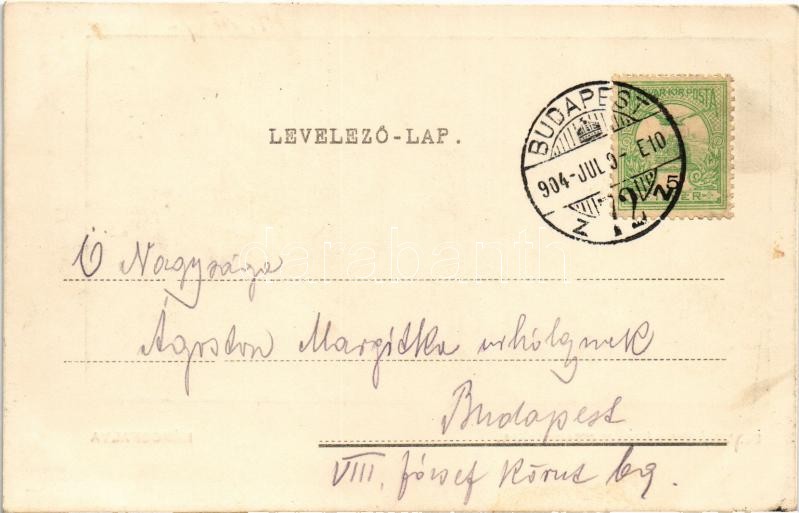 LEVELEZŐ-LAP.
MAGYAR KIR. POSTA
BUDAPEST
904-JUL 9- E10
72
Z 2
5
Ő Nagysága
Ágoston Margitka urhölgynek
Budapest
VIII. József Körut 69.
darabanth